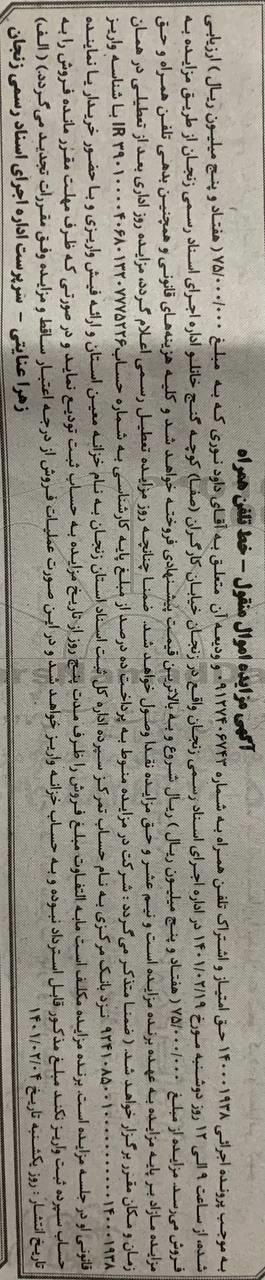 آگهی مزایده اموال منقول – خط تلفن همراه
به موجب پرونده اجرائی ۱۴۰۰۰۱۹۳۸ حق امتیاز و اشتراک تلفن همراه به شماره ۰۹۱۲۷۴۰۶۷۴۳ و ودیعه آن متعلق به آقای داود نوری که به مبلغ ۷۵/۰۰۰/۰۰۰ (هفتاد و پنج میلیون ریال) ارزیابی
شده، از ساعت ۹ الی ۱۲ روز دوشنبه مورخ ۱۴۰۱/۰۲/۱۹ در اداره اجرای اسناد رسمی زنجان واقع در زنجان خیابان کارگران (صفا) کوچه گنج خانلو اداره اجرای اسناد رسمی زنجان از طریق مزایده به
فروش می‌رسد. مزایده از مبلغ ۷۵/۰۰۰/۰۰۰ (هفتاد و پنج میلیون ریال) ریال شروع و به بالاترین قیمت پیشنهادی فروخته خواهد شد و کلیه هزینه‌های قانونی و همچنین بدهی تلفن همراه و حق
مزایده مازاد بر پایه مزایده به عهده برنده مزایده است و نیم عشر و حق مزایده نقدا وصول خواهد شد. ضمنا چنانچه روز مزایده تعطیل رسمی اعلام گردد، مزایده روز اداری بعد از تعطیلی در همان
زمان و مکان مقرر برگزار خواهد شد. (ضمنا متذکر می‌گردد: شرکت در مزایده منوط به پرداخت ده درصد از مبلغ پایه کارشناسی به شماره حساب IR۳۹۰۱۰۰۰۰۴۰۶۸۰۱۳۲۰۷۷۷۵۲۲۶ با شناسه واریز
۹۲۴۱۰۸۵۰۰۱۰۰۰۰۰۰۰۰۰۰۱۴۰۰۰۱۹۳۸ نزد بانک مرکزی به نام حساب تمرکز سپرده اداره کل ثبت اسناد استان زنجان به نام خزانه معین استان و ارائه فیش واریزی و با حضور خریدار یا نماینده
قانونی او در جلسه مزایده است. برنده مزایده مکلف است مابه التفاوت مبلغ فروش را ظرف مدت پنج روز از تاریخ مزایده به حساب ثبت تودیع نماید و در صورتی که ظرف مهلت مقرر مانده فروش را به
حساب سپرده ثبت واریز نکند مبلغ مذکور قابل استرداد نبوده و به حساب خزانه واریز خواهد شد و در این صورت عملیات فروش از درجه اعتبار ساقط و مزایده وفق مقررات تجدید می‌گردد.) (الف)
تاریخ انتشار: روز یکشنبه تاریخ ۱۴۰۱/۰۲/۰۴
زهرا عنایتی – سرپرست اداره اجرای اسناد رسمی زنجان